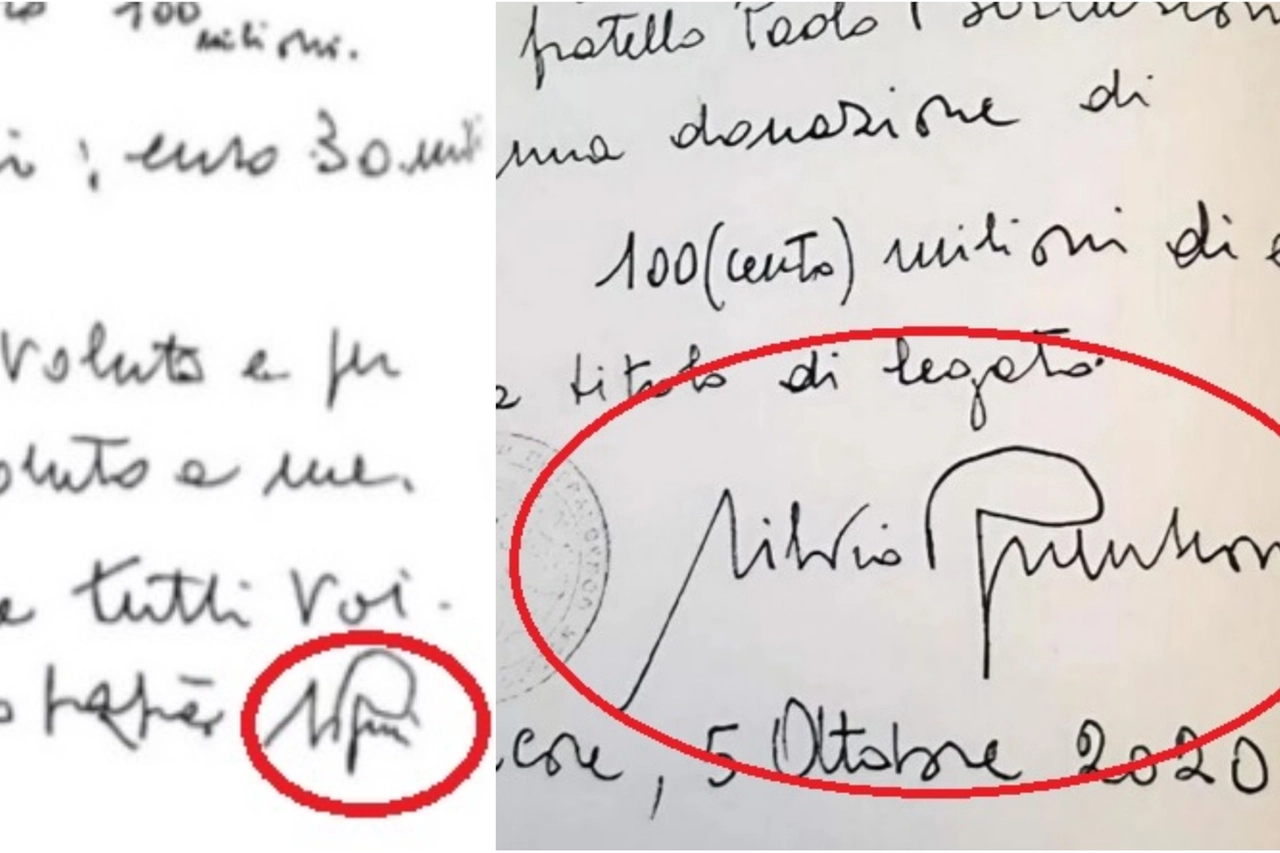 100
milioni.
; euro 30 mil
voluto e per
voluto a me.
tutti voi.
papà
fratello Paolo
una donazione di
100 (cento) milioni di
a titolo di legato.
Silvio
core, 5 Ottobre 2020